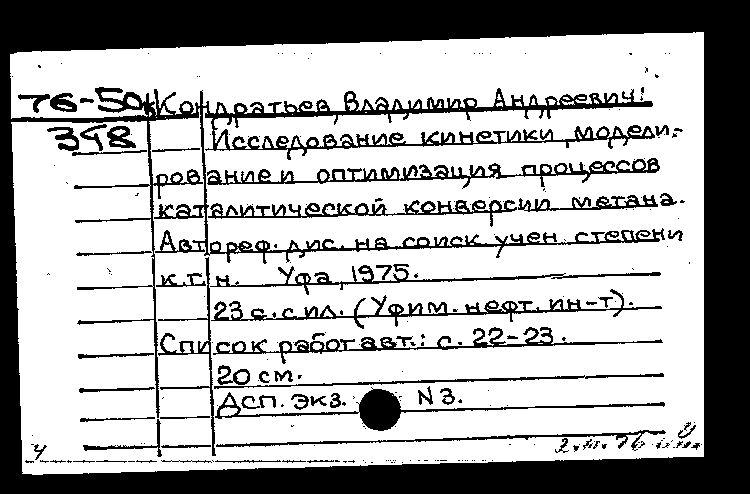 76-50к Кондратьев, Владимир Андреевич!
348 Исследование кинетики, модели-
рование и оптимизация процессов
каталитической конверсии метана.
Автореф. дис. на соиск учен степени
к.т.н. Уфа, 1975.
23 с. с ил. (Уфим. нефт. ин-т).
Список работ авт.: с. 22-23.
20 см.
Дсп. экз. N 3.
ч